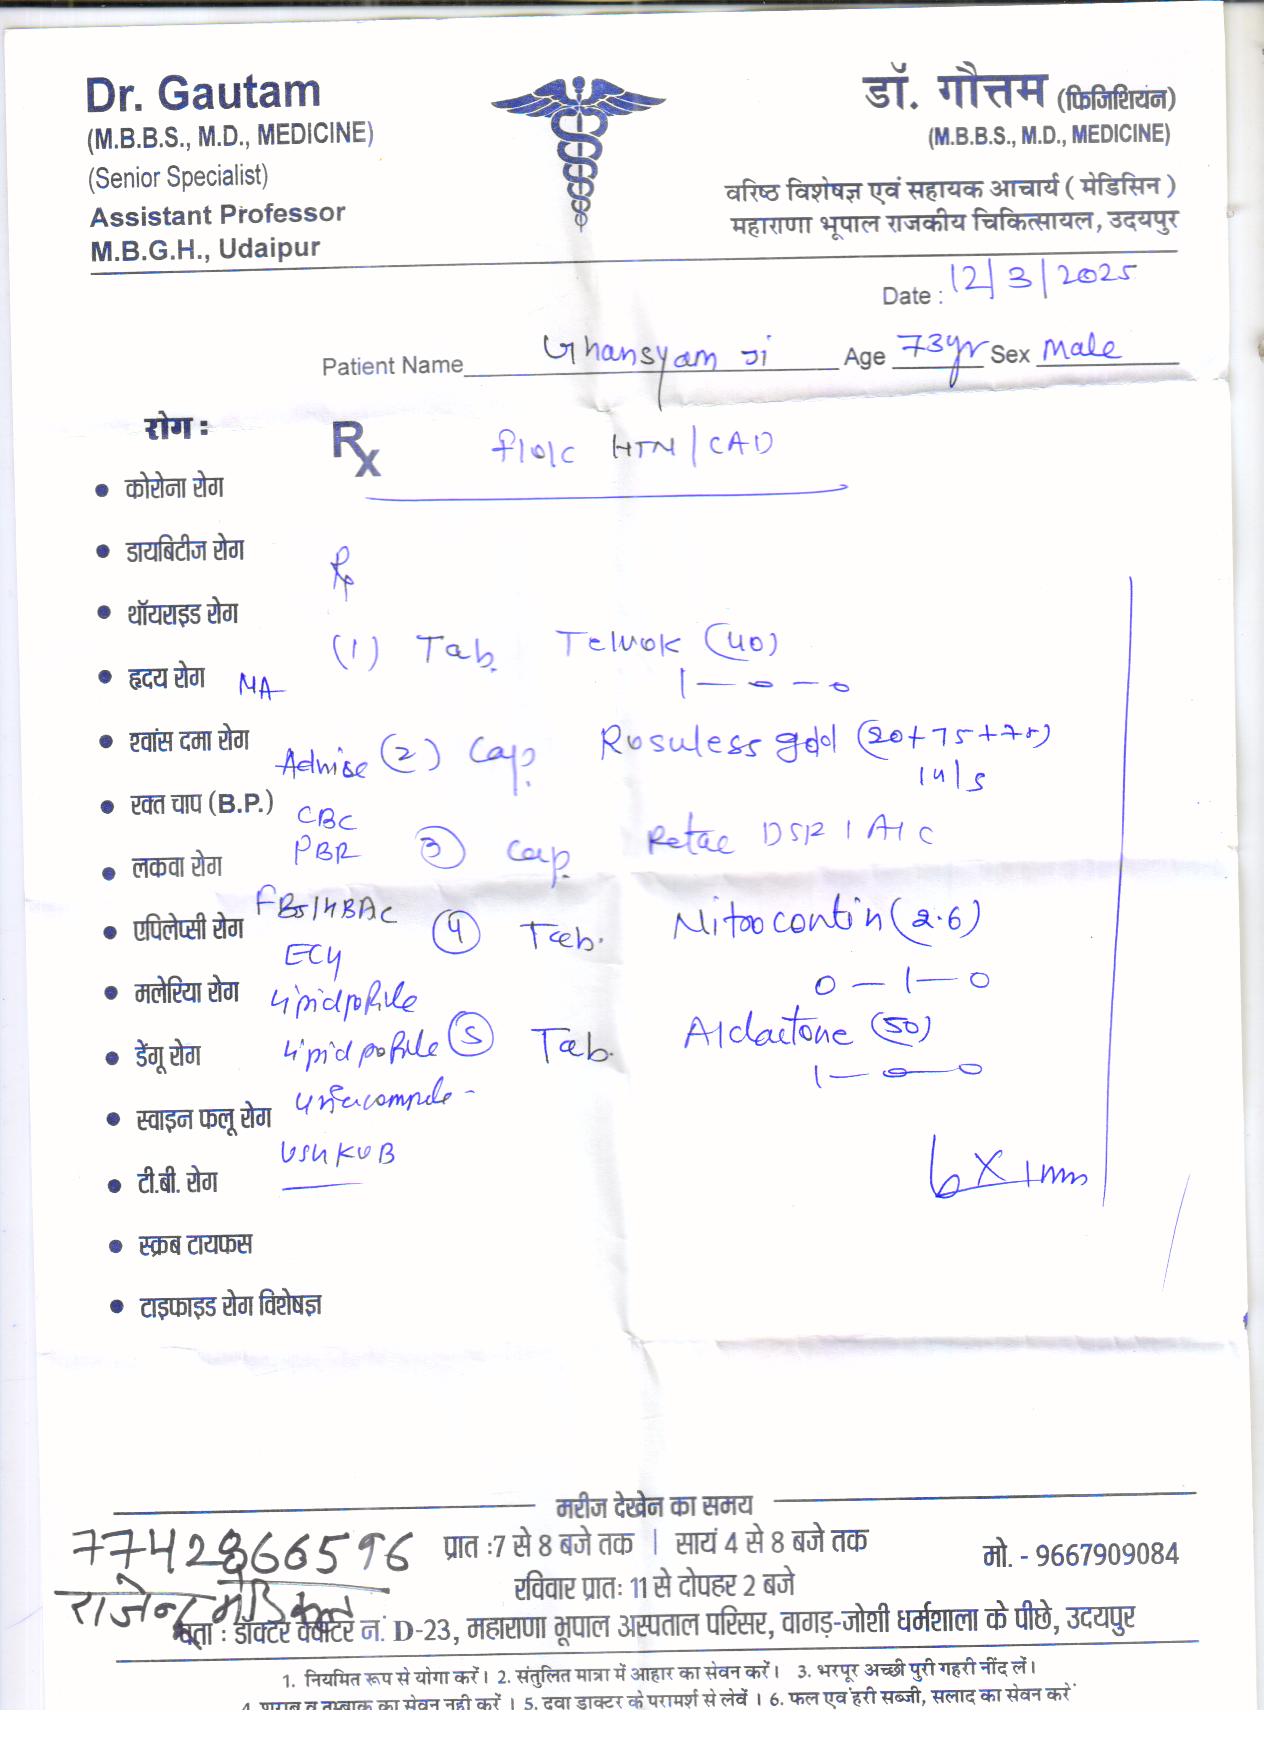 Dr. Gautam
(M.B.B.S., M.D., MEDICINE)
(Senior Specialist)
Assistant Professor
M.B.G.H., Udaipur
डॉ. गौत्तम (फिजिशियन)
(M.B.B.S., M.D., MEDICINE)
वरिष्ठ विशेषज्ञ एवं सहायक आचार्य ( मेडिसिन )
महाराणा भूपाल राजकीय चिकित्सायल, उदयपुर
Date : 12/3/2025
Patient Name Ghansyam Ji Age 73yr Sex Male
रोग :
Rx
HTN / CAD
• कोरोना रोग
• डायबिटीज रोग
• थॉयराइड रोग
• हृदय रोग
• श्वांस दमा रोग
• रक्त चाप (B.P.)
• लकवा रोग
• एपिलेप्सी रोग
• मलेरिया रोग
• डेंगू रोग
• स्वाइन फलू रोग
• टी.बी. रोग
• स्क्रब टायफस
• टाइफाइड रोग विशेषज्ञ
Advise
CBC
PBR
ECG
Lipid
Lipid
KUB
Rx
(1) Tab. (40)
1 — 0 — 0
(2) Cap. Rosuless gold (20+75+75)
(3) Cap. DSR 1 A/C
(4) Tab. Nitrocontin (2.6)
0 — 1 — 0
(5) Tab. Aldactone (50)
1 — 0 — 0
मरीज देखेन का समय
प्रात :7 से 8 बजे तक | सायं 4 से 8 बजे तक
रविवार प्रातः 11 से दोपहर 2 बजे
मो. - 9667909084
राजेन्द्र मेडिकल
पता : डॉक्टर क्वार्टर नं. D-23, महाराणा भूपाल अस्पताल परिसर, वागड़-जोशी धर्मशाला के पीछे, उदयपुर
1. नियमित रूप से योगा करें। 2. संतुलित मात्रा में आहार का सेवन करें। 3. भरपूर अच्छी पुरी गहरी नींद लें।
4. शराब व तम्बाक का सेवन नही करें । 5. दवा डाक्टर के परामर्श से लेवें । 6. फल एवं हरी सब्जी, सलाद का सेवन करें